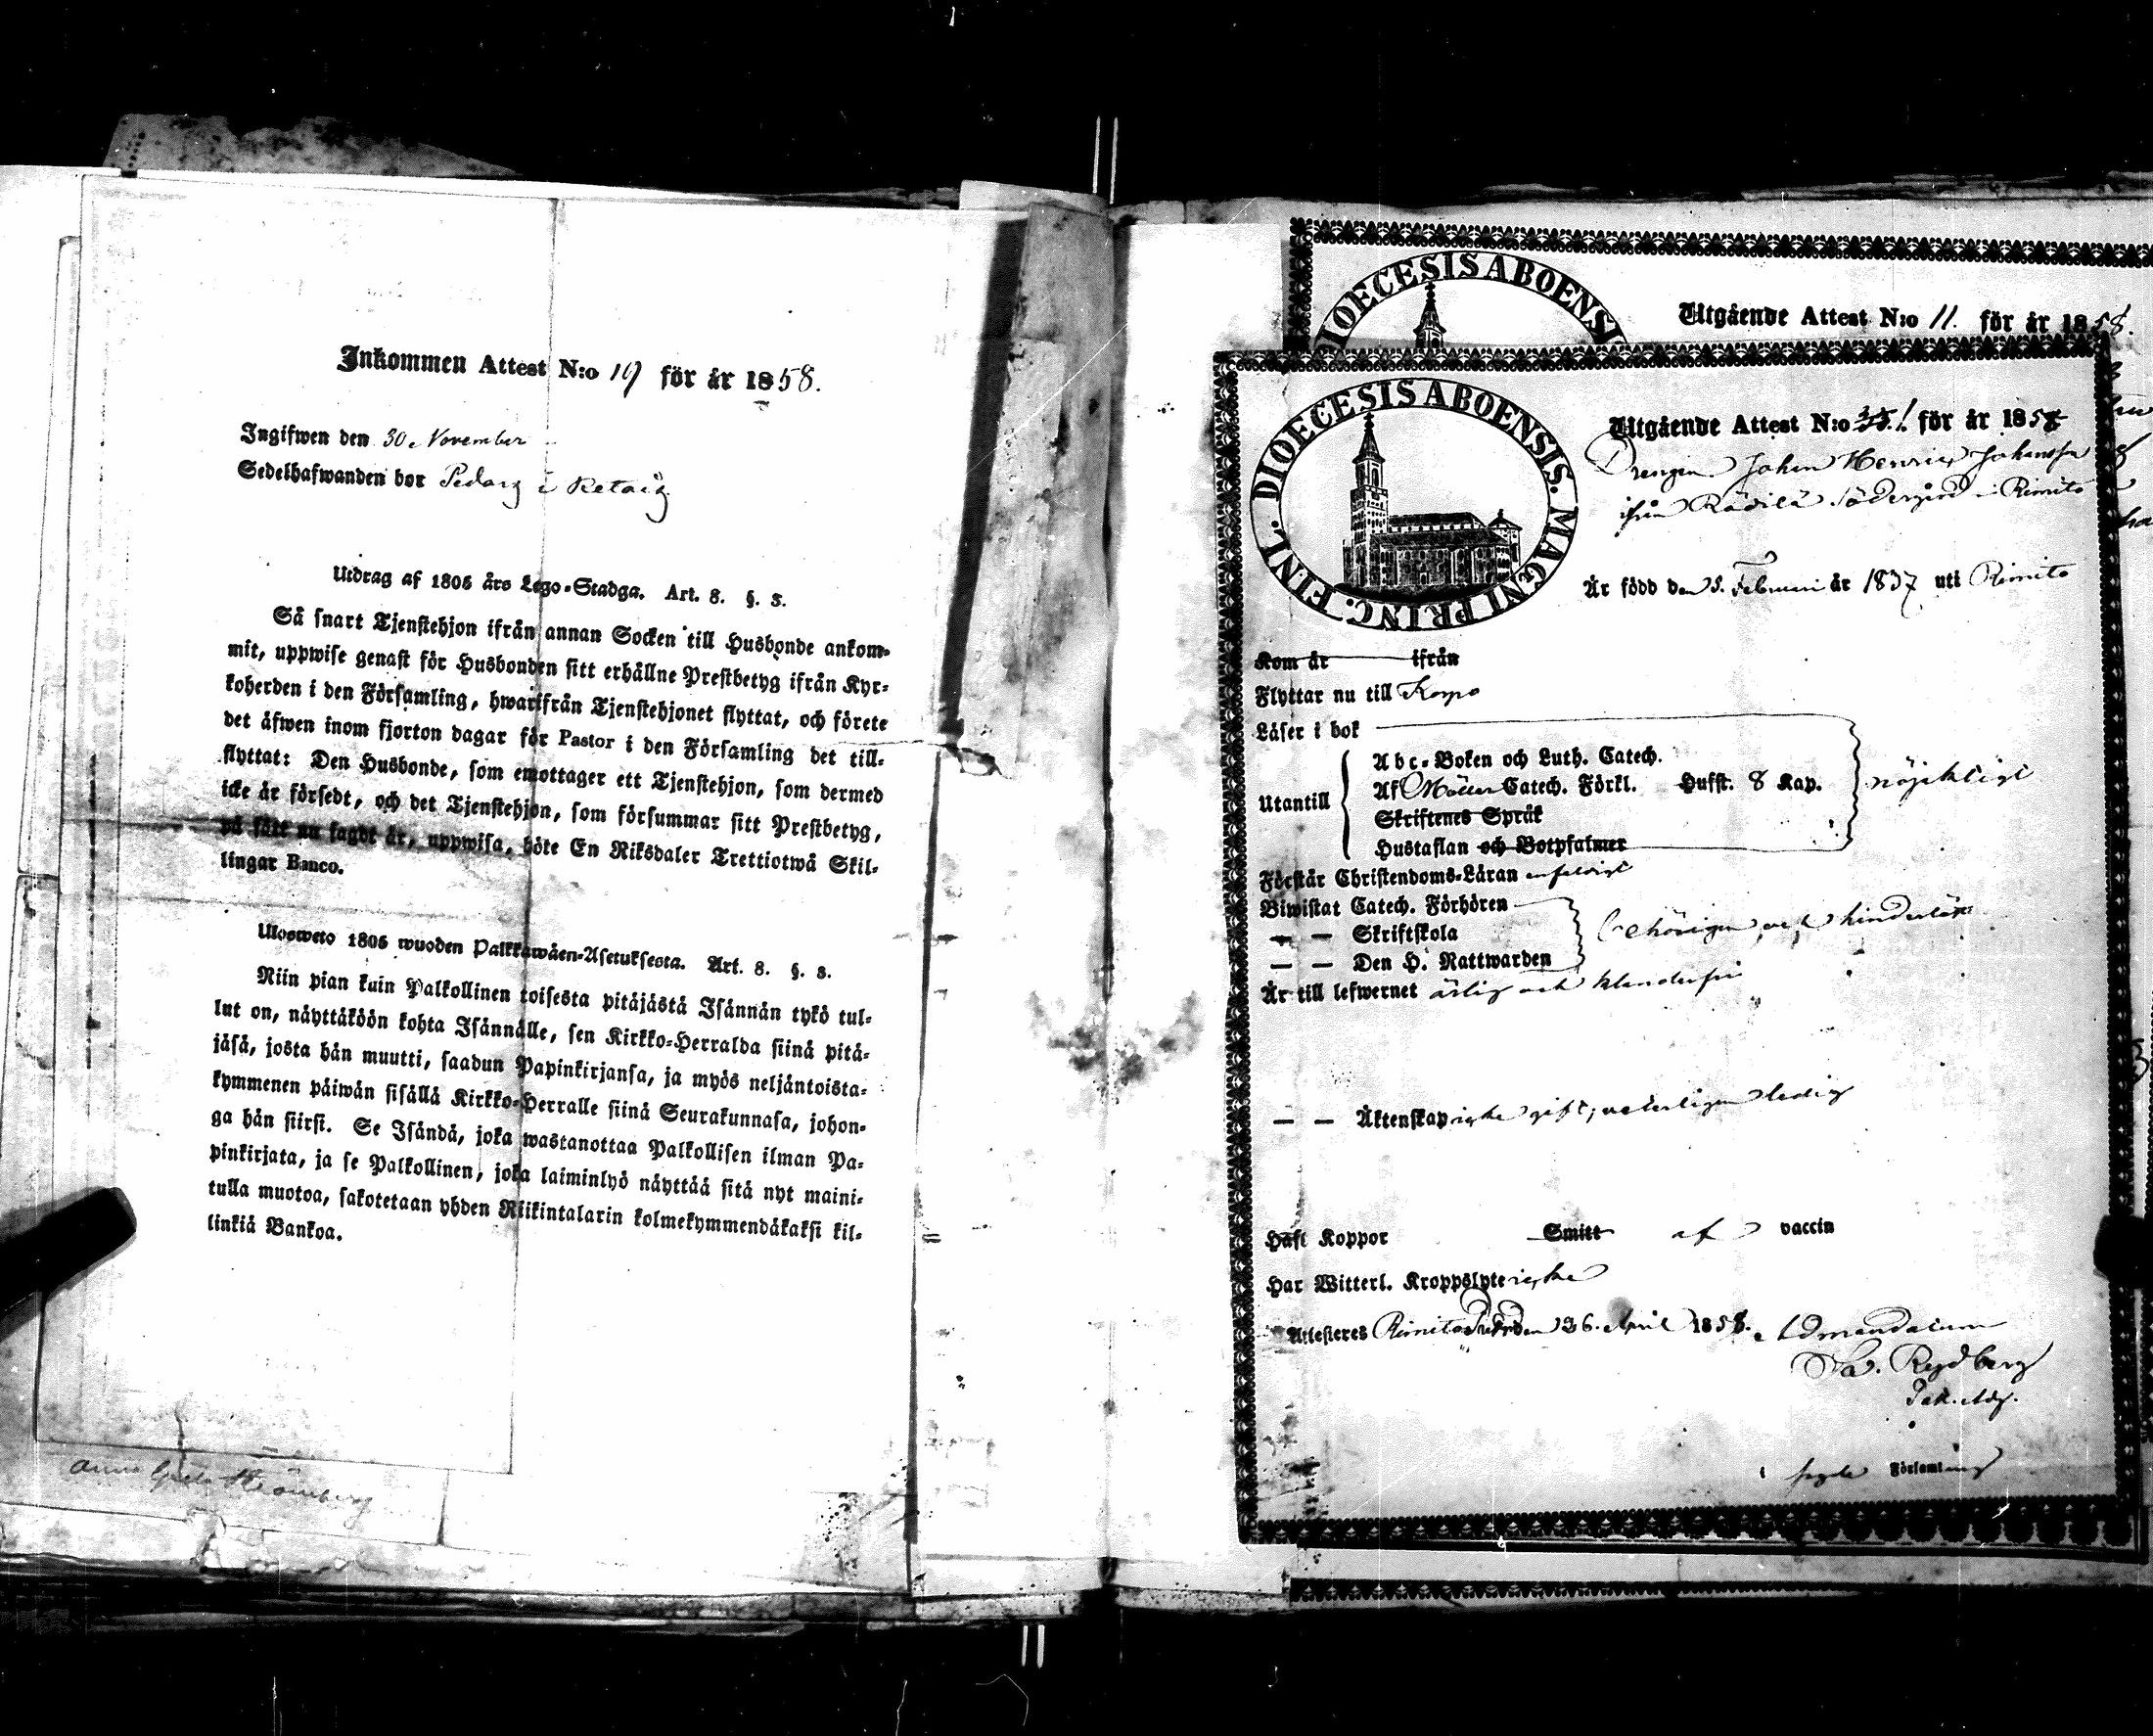 Inkommen Attest N:o 19 för år 1858.
Ingifwen den 30 November
Sedelhafwanden bor Pedarg i Retaig
Utdrag af 1805 års Lego-Stadga. Art. 8. §. 3.
Så snart Tjenstehjon ifrån annan Socken till Husbonde ankom-
mit, uppwise genast för Husbonden sitt erhållne Prestbetyg ifrån Kyr-
koherden i den Församling, hwarifrån Tjenstehjonet flyttat, och förete
det äfwen inom fjorton dagar för Pastor i den Församling det till-
flyttat: Den Husbonde, som emottager ett Tjenstehjon, som dermed
icke är försedt, och det Tjenstehjon, som försummar sitt Prestbetyg,
på sätt nu sagdt är, uppwisa, böte En Riksdaler Trettiotwå Skil-
lingar Banco.
Ulosweto 1805 wuoden Palkkawäen-Asetuksesta. Art. 8. §. 3.
Niin pian kuin Palkollinen toisesta pitäjästä Isännän tykö tul-
lut on, näyttäköön kohta Isännälle, sen Kirkko-Herralda siinä pitä-
jäsä, josta hän muutti, saadun Papinkirjansa, ja myös neljäntoista-
kymmenen päiwän sisällä Kirkko-Herralle siinä Seurakunnasa, johon-
ga hän siirsi. Se Isändä, joka wastanottaa Palkollisen ilman Pa-
pinkirjata, ja se Palkollinen, joka laiminlyö näyttää sitä nyt maini-
tulla muotoa, sakotetaan yhden Riikintalarin kolmekymmendäkaksi kil-
linkiä Bankoa.
Anna Greta Strömberg
DIOECESIS ABOENSI
Utgående Attest N:o 11. för år 1858.
DIOECESIS ABOENSIS. MAGNI PRINC. FINL.
Utgående Attest N:o för år 1858
Drengen Johan Henric Johansson
ifrån Rädilä Södergård i Rimito
Är född den 5. Februari år 1837 uti Rimito
Kom år ifrån
Flyttar nu till Korpo
Läser i bok
Utantill
Abc-Boken och Luth. Catech.
Af Möller Catech. Förkl. Hufst. 8 Kap.
Skriftenes Språk
Hustaflan och Botpsalmer
nöjaktigt
Förstår Christendoms-Läran enfaldigt
Biwistat Catech. Förhören
— — Skriftskola
— — Den H. Nattwarden
behörigen och hinderlös
Är till lefwernet ärlig och klanderfri
— — Äktenskap icke gift, veterligen ledig
Haft Koppor Smitt af vaccin
Har Witterl. Kroppslyte icke
Attesteres Rimito den 26. April 1858. Ad mandatum
Rydberg
Församl